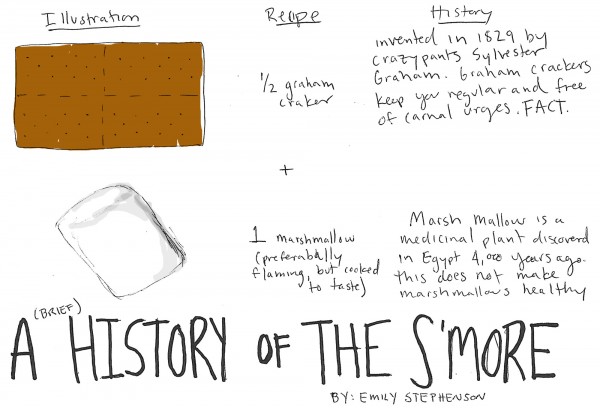 Illustration
Recipe
History
1/2 graham
craker
invented in 1829 by
crazypants Sylvester
Graham. Graham crackers
keep you regular and free
of carnal urges. FACT.
+
1 marshmallow
(preferabally
flaming, but cooked
to taste)
Marsh mallow is a
medicinal plant discoverd
in Egypt 4,000 years ago.
this does not make
marshmallows healthy
A (BRIEF) HISTORY OF THE S'MORE
BY: EMILY STEPHENSON